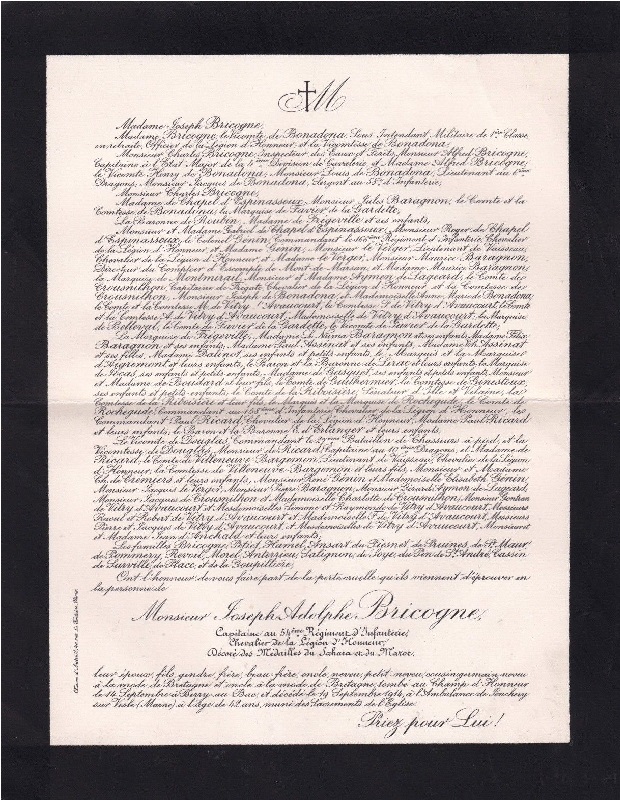 M
Madame Joseph Bricogne,
Madame Bricogne, le Vicomte de Bonadona, Sous Intendant Militaire de 1ère Classe,
en retraite, Officier de la Légion d'Honneur, et la Vicomtesse de Bonadona,
Monsieur Charles Bricogne, Inspecteur des Eaux et Forêts, Monsieur Alfred Bricogne,
Capitaine à l'Etat Major de la Division de Cavalerie, et Madame Alfred Bricogne,
le Vicomte Henry de Bonadona, Monsieur Louis de Bonadona, Lieutenant au 6ème
Dragons, Monsieur Jacques de Bonadona, Sergent au d'Infanterie,
Monsieur Charles Bricogne,
Madame de Chapel d'Espinassoux, Monsieur Jules Baragnon, le Comte et la
Comtesse de Bonadona, la Marquise de Javier de la Gardette,
La Baronne de Roubin, Madame de Frégeville et ses enfants,
Monsieur et Madame Gabriel de Chapel d'Espinassoux, Monsieur Roger de Chapel
d'Espinassoux, le Colonel Genin, Commandant le Régiment d'Infanterie, Chevalier
de la Légion d'Honneur, et Madame Genin, Monsieur le Verger, Lieutenant de Vaisseau,
Chevalier de la Légion d'Honneur et Madame le Verger, Monsieur Maurice Baragnon,
Directeur du Comptoir d'Escompte de Mont de Marsan, et Madame Maurice Baragnon,
la Marquise de Montmirail, Monsieur et Madame Aymon de Lageard, le Comte de
Crousnilhon, Capitaine de Frégate, Chevalier de la Légion d'Honneur, et la Comtesse de
Crousnilhon, Monsieur Joseph de Bonadona, et Mademoiselle Anne Marie de Bonadona,
le Comte et la Comtesse M. de Vitry d'Avaucourt, le Comte F. de Vitry d'Avaucourt, le Comte
et la Comtesse A. de Vitry d'Avaucourt, Mademoiselle de Vitry d'Avaucourt, la Marquise
de Belleval, le Comte de Javier de la Gardette, le Vicomte de Javier de la Gardette,
La Marquise de Frégeville, Madame de Numa Baragnon et ses enfants, Madame Félix
Baragnon et ses enfants, Madame Paul Assenat et ses enfants, Madame Assenat
et ses filles, Madame Balincq, ses enfants et petits enfants, le Marquis et la Marquise
d'Aigremont et leurs enfants, le Baron et la Baronne de et leurs enfants, la Marquise
de ses enfants et petits enfants, Madame de ses enfants et petits enfants, Monsieur
et Madame de Boudard et leur fils, le Comte de Guilhermier, la Comtesse de Ginestoux,
ses enfants et petits-enfants, le Comte de la Riboisière, Sénateur d'Ille et Vilaine, la
Comtesse de la Riboisière et leur fils, le Marquis et la Marquise de Rochegude, le Comte de
Rochegude, Commandant au d'Infanterie, Chevalier de la Légion d'Honneur, le
Commandant Paul Ricard, Chevalier de la Légion d'Honneur, Madame Paul Ricard
et leurs enfants, le Baron et la Baronne E. d'Erlanger et leurs enfants,
Le Vicomte de Douglas, Commandant le 29ème Bataillon de Chasseurs à pied, et la
Vicomtesse de Douglas, Monsieur de Ricard, Capitaine au 10ème Dragons, et Madame de
Ricard, le Comte de Villeneuve Bargemon, Lieutenant de Vaisseau, Chevalier de la Légion
d'Honneur, la Comtesse de Villeneuve-Bargemon et leurs fils, Monsieur et Madame
Ch. de Crémiers et leurs enfants, Monsieur René Genin et Mademoiselle Elisabeth Genin,
Monsieur Jacques le Verger, Monsieur Pierre Baragnon, Monsieur Gérard Aymon de Lageard,
Monsieur Jacques de Crousnilhon et Mademoiselle Charlotte de Crousnilhon, Monsieur Gontran
de Vitry d'Avaucourt et Mesdemoiselles Simone et Raymonde de Vitry d'Avaucourt, Messieurs
Raoul et Robert de Vitry d'Avaucourt et Mademoiselle F. de Vitry d'Avaucourt, Messieurs
Pierre et Jacques de Vitry d'Avaucourt et Mesdemoiselles de Vitry d'Avaucourt, Monsieur
et Madame Jean d'Anchald et leurs enfants,
Les familles Bricogne, Petit, Hamel, Ansart du Fiesnet, de Prunes, de St Maur,
de Pommery, Revoil, Morel, Anterrieu, Salignon, de Joye, du Pin de St André, Cassin
de Surville, de Place, et de la Goupillière,
Ont l'honneur de vous faire part de la perte cruelle qu'ils viennent d'éprouver en
la personne de
Monsieur Joseph Adolphe Bricogne,
Capitaine au 54ème Régiment d'Infanterie,
Chevalier de la Légion d'Honneur,
Décoré des Médailles du Sahara et du Maroc,
leur époux, fils, gendre, frère, beau-frère, oncle, neveu, petit neveu, cousin germain, neveu
à la mode de Bretagne et oncle à la mode de Bretagne, tombé au Champ d'Honneur
le 14 Septembre à Berry au Bac, et décédé le 14 Septembre 1914, à l'Ambulance de Jonchery
sur Vesle (Marne) à l'âge de 42 ans, muni des Sacrements de l'Eglise.
Priez pour Lui!